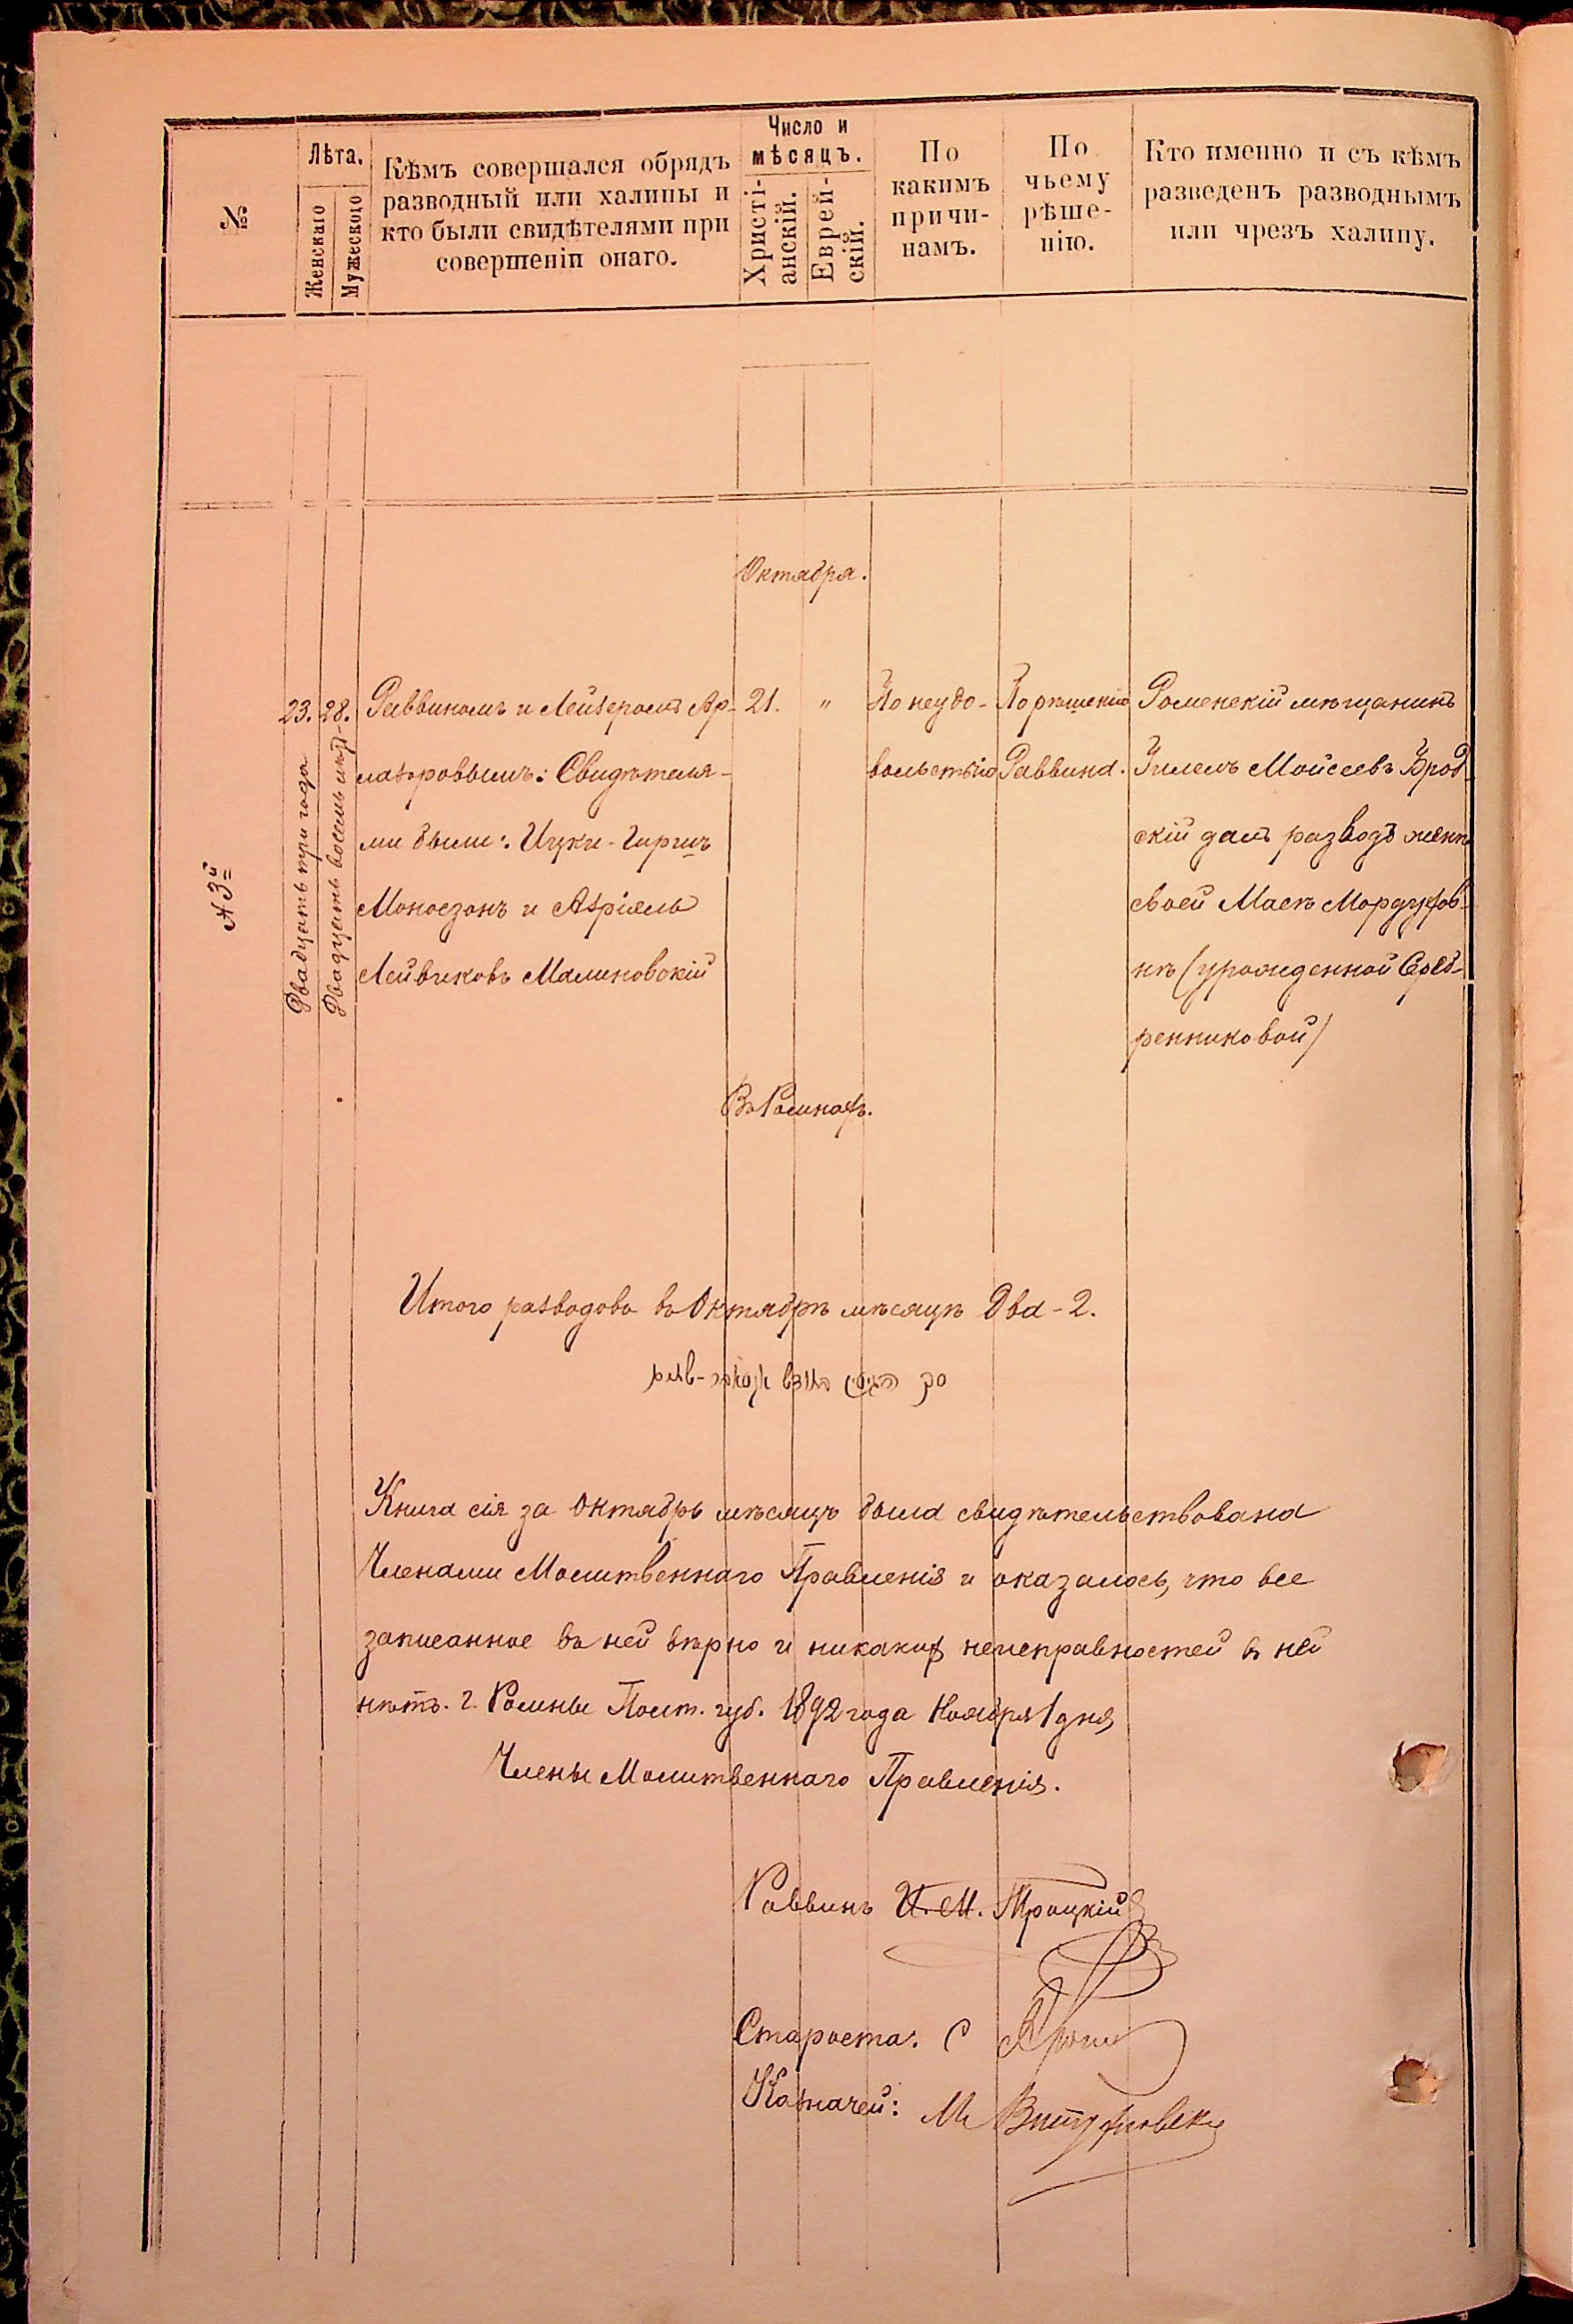 №
Лѣта.
Женскаго
Мужескаго
Кѣмъ совершался обрядъ
разводный или халицы и
кто были свидѣтелями при
совершеніи онаго.
Число и
мѣсяцъ.
Христі-
анскій.
Еврей-
скій.
По
какимъ
причи-
намъ.
По
чьему
рѣше-
нію.
Кто именно и съ кѣмъ
разведенъ разводнымъ
или чрезъ халицу.
Октября.
№ 3й
23.
Двадцать три года
28.
Двадцать восемь лѣтъ
Раввиномъ и Лейзеромъ Ар-
маторовымъ: Свидѣтеля-
ми были: Ицки-Гиршъ
Моносзонъ и Азріель
Лейвиковъ Малиновскій
21.
"
По неудо-
вольствію
По рѣшенію
Раввина.
Роменскій мѣщанинъ
Гилель Мойсеевъ Брод-
скій далъ разводъ женѣ
своей Масѣ Мордухов-
нѣ (урожденной Сереб-
ренниковой)
Въ Ромнахъ.
Итого разводовъ въ Октябрѣ мѣсяцѣ Два - 2.
Книга сія за Октябрь мѣсяцъ была свидѣтельствована
Членами Молитвеннаго Правленія и оказалось, что все
записанное въ ней вѣрно и никакихъ неисправностей въ ней
нѣтъ. г. Ромны Полт. губ. 1892 года Ноября 1 дня
Члены Молитвеннаго Правленія.
Раввинъ И. М. Троцкій
Староста: С
Казначей: М